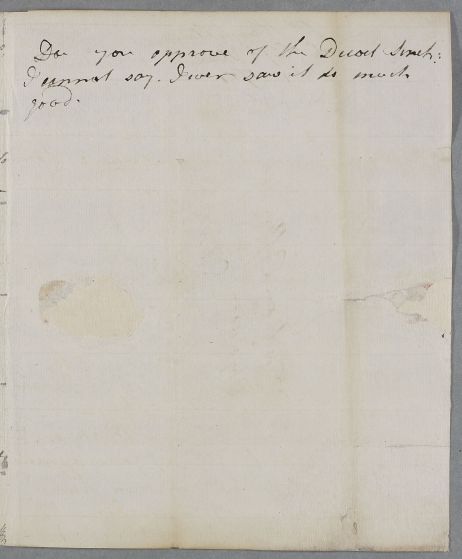 Do you approve of the Ducal Sirich:
I cannot say I ever saw it do much
good.